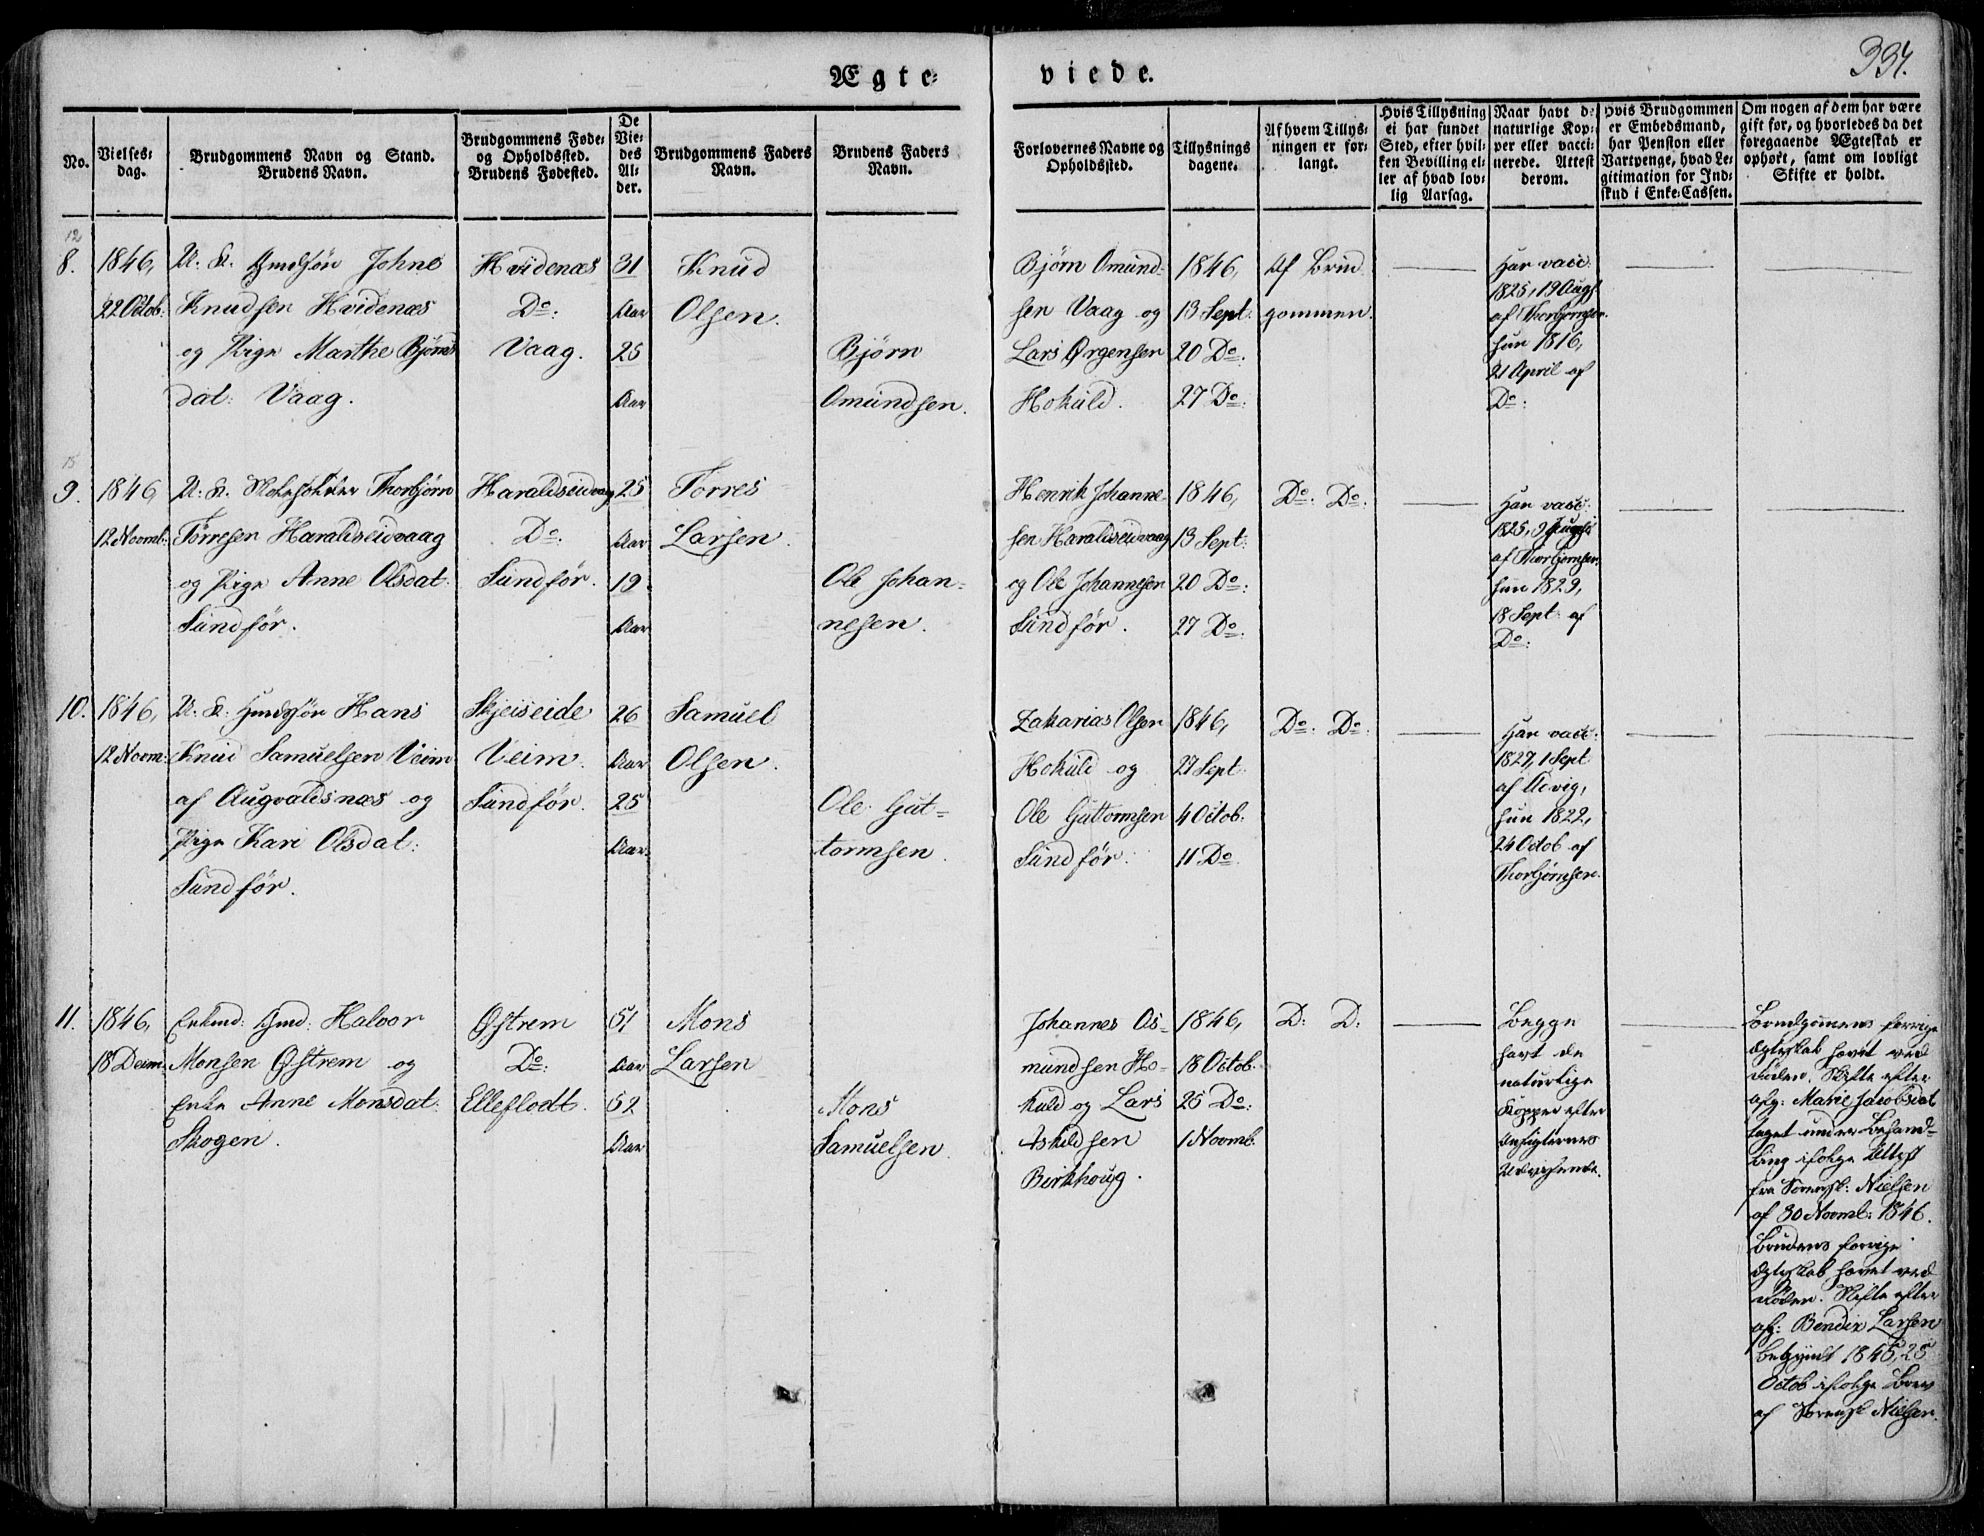 334.
Ægte=
viede.
No.
Vielses=
dag.
Brudgommens Navn og Stand.
Brudens Navn.
Brudgommens Føde=
og Opholdssted.
Brudens Fødested.
De
Vie=
des
Al=
der.
Brudgommens Faders
Navn.
Brudens Faders
Navn.
Forlovernes Navne og
Opholdssted.
Tillysnings
dagene.
Af hvem Tillys=
ningen er for=
langt.
Hvis Tillysning
ei har fundet
Sted, efter hvil=
ken Bevilling el=
ler af hvad lov=
lig Aarsag.
Naar havt de
naturlige Kop=
per eller vacci=
nerede. Attest
derom.
Hvis Brudgommen
er Embedsmand,
har Pension eller
Vartpenge, hvad Le=
gitimation for Ind=
skud i Enke=Cassen.
Om nogen af dem har være
gift før, og hvorledes da det
foregaaende Ægteskab er
ophørt, samt om lovligt
Skifte er holdt.
12
8.
1846,
22 Octob:
U. K. Johns
Knudsen Hvidenæs
og Pige Marthe Bjørns
dat: Vaag.
Hvidenæs
Do:
Vaag.
31
Aar
25
Aar
Knud
Olsen.
Bjørn
Omundsen.
Bjørn Omund-
sen Vaag og
Lars Ørgensen
Hokuld.
1846,
13 Sept:
20 Do:
27 Do:
Af Brud
gommen.
Har vacc:
1825, 19 Augs
af Thorbjørnsen.
hun 1816,
21 April af
Do:
15
9.
1846
12 Novmb:
U: K. Thorbjørn
Torresen Haraldseidvaag
og Pige Anne Olsdat:
Sundfør.
Haraldseidvaag
Do:
Sundfør.
25
Aar
19
Aar
Torres
Larsen.
Ole Johan-
nesen.
Henrik Johanne-
sen Haraldseidvaag
og Ole Johannesen
Sundfør.
1846,
13 Sept:
20 Do:
27 Do:
Do: Do:
Har vacc:
1825, 9
af Thorbjørnsen.
hun 1829,
18 Sept: af
Do:
10.
1846,
12 Novm:
U. K: Hans
Knud Samuelsen Veim
af Augvaldsnæs og
Pige Kari Olsdat:
Sundfør.
Skjeiseide
Veim.
Sundfør.
26
Aar
25
Aar
Samuel
Olsen.
Ole Gut-
tormsen.
Zakarias Olsen
Hokuld og
Ole Guttormsen
Sundfør.
1846,
27 Sept:
4 Octob:
11 Do.
Do: Do:
Har vacc:
1827, 1 Sept
af Advig,
hun 1822,
24 Octob af
Thorbjørnsen.
11.
1846,
18 Decm:
Enkmd: Gmd: Halvor
Monsen Østrem og
Enke Anne Monsdat:
Skogen.
Østrem
Do:
Elleflodt.
51
Aar
52
Aar
Mons
Larsen
Mons
Samuelsen.
Johannes As-
mundsen Ho-
kuld og Lars
Askildsen
Birkhoug.
1846,
18 Octob.
25 Do:
1 Novmb.
D: D:
Begge
havt de
naturlige
Kopper efter
Ansigternes
Udvisende.
Brudgomens forrige
Ægteskab hævet ved
Døden. Skifte efter
afg: Marie Jacobsdat
taget under Behand-
ling ifølge Attest
fra Sorensk: Nielsen
af 30 Novmb: 1846.
Brudens forrige
Ægteskab hævet ved
Døden. Skifte efter
afg: Bendix Larsen
begyndt 1845, 25
Octob ifølge Brev
af Sorensk Nielsen.